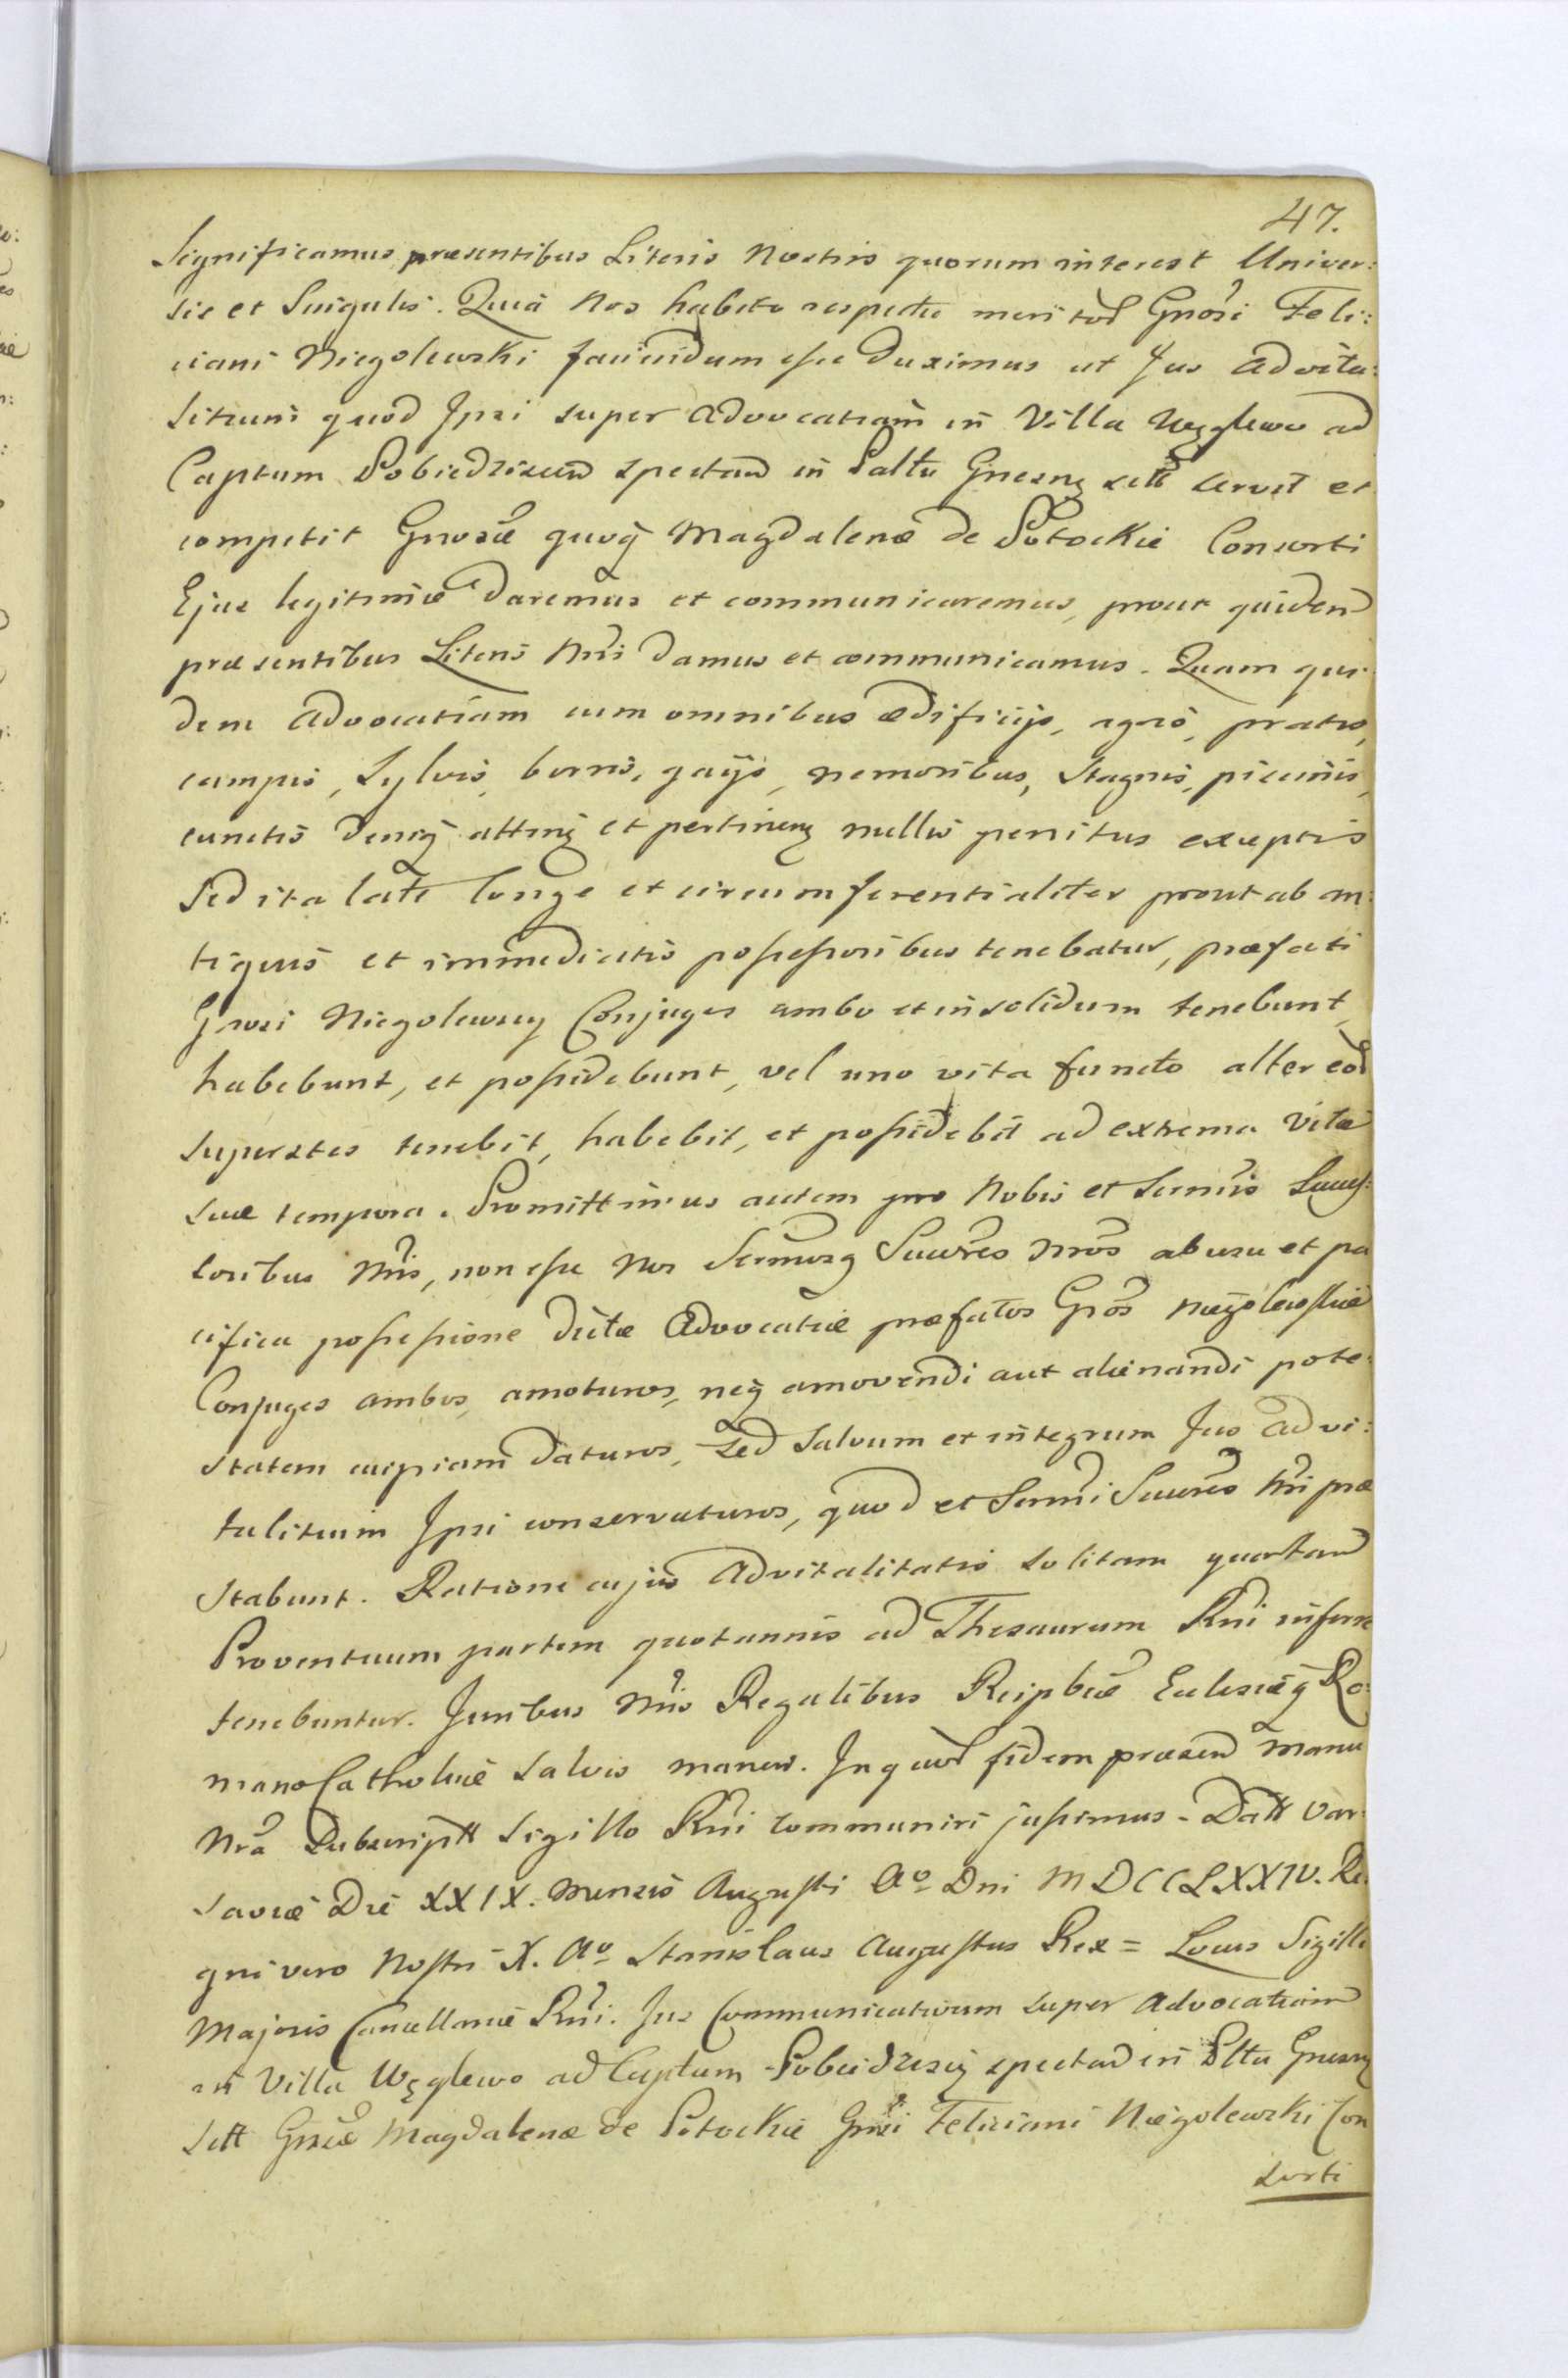 47.
Significamus præsentibus Literis Nostris quorum interest Univer:
sis et Singulis. Quia Nos habito respectu meritod Gnosi Feli:
ciani Niegolewski faciendum esse duximus ut Jus advita:
litium quod Ipsi super advocatiam in Villa Węglewo ad
Captum Pobiedzisen spectan in Paltu Gnesn sitt servit et
competit Gnosæ quoq Magdalenæ de Potockie Consorti
Ejus legitimæ daremus et communicaremus, prout quidem
præsentibus Literis Nris damus et communicamus. Quam qui
dem advocatiam cum omnibus ædificijs, agris, pratis,
campis, Sylvis, borris, gaijs, nemoribus, Stagnis, piscinis,
cunctis deniq attin et pertinen nullis penitus exceptis
Sed ita late longe et circumferentialiter prout ab an:
tiquis et immediatis possessoribus tenebatur, præfati
Gnosi Niegolewscy Conjuges ambo et insolidum tenebunt,
habebunt, et possidebunt, vel uno vita functo alter eod
superstes tenebit, habebit, et possidebit ad extrema vitæ
suæ tempora. Promittimus autem pro Nobis et Sermis Success:
soribus Nris, non esse Nos Sermosq Succres Nros ab usu et pa
cifica possessione dictæ Advocatiæ præfatos Gnos Niegolewskie
Conjuges ambos, amoturos, neq amovendi aut alienandi pote:
statem cuipiam daturos, Sed Salvum et integrum Jus advi:
talitium Ipsi conservaturos, quod et Sermi Succres Nri præ
stabunt. Ratione cujus advitalitatis solitam quartam
Proventuum partem quotannis ad Thesaurum Rni inferre
tenebuntur. Juribus Nris Regalibus Reipbcæ Eclesiæq Ro:
mano Catholicæ salvis manen. In quor fidem præsen manu
Nra Subscriptt Sigillo Rni communiri jussimus. Datt Var
saviæ Die XXIX. Mensis Augusti Ao Dni MDCCLXXIV. Re
gni vero Nostri X. Ao Stanislaus Augustus Rex = Locus Sigilli
Majoris Cancellariæ Rni. Jus Communicativum super Advocatiam
in Villa Węglewo ad Captum Pobiedzisen spectan in Pltu Gnesn
sitt Gnsæ Magdalenæ de Potockie Gnsi Feliciani Niegolewski Con
sorti